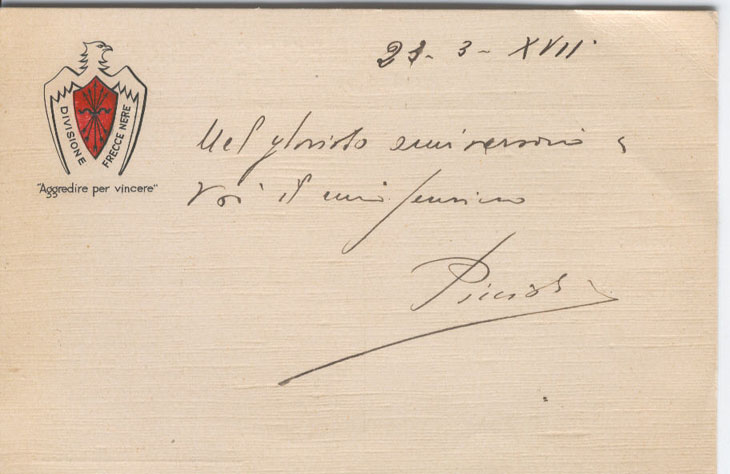 23-3-XVII
DIVISIONE FRECCE NERE
"Aggredire per vincere"
Nel glorioso anniversario a
Voi il mio pensiero